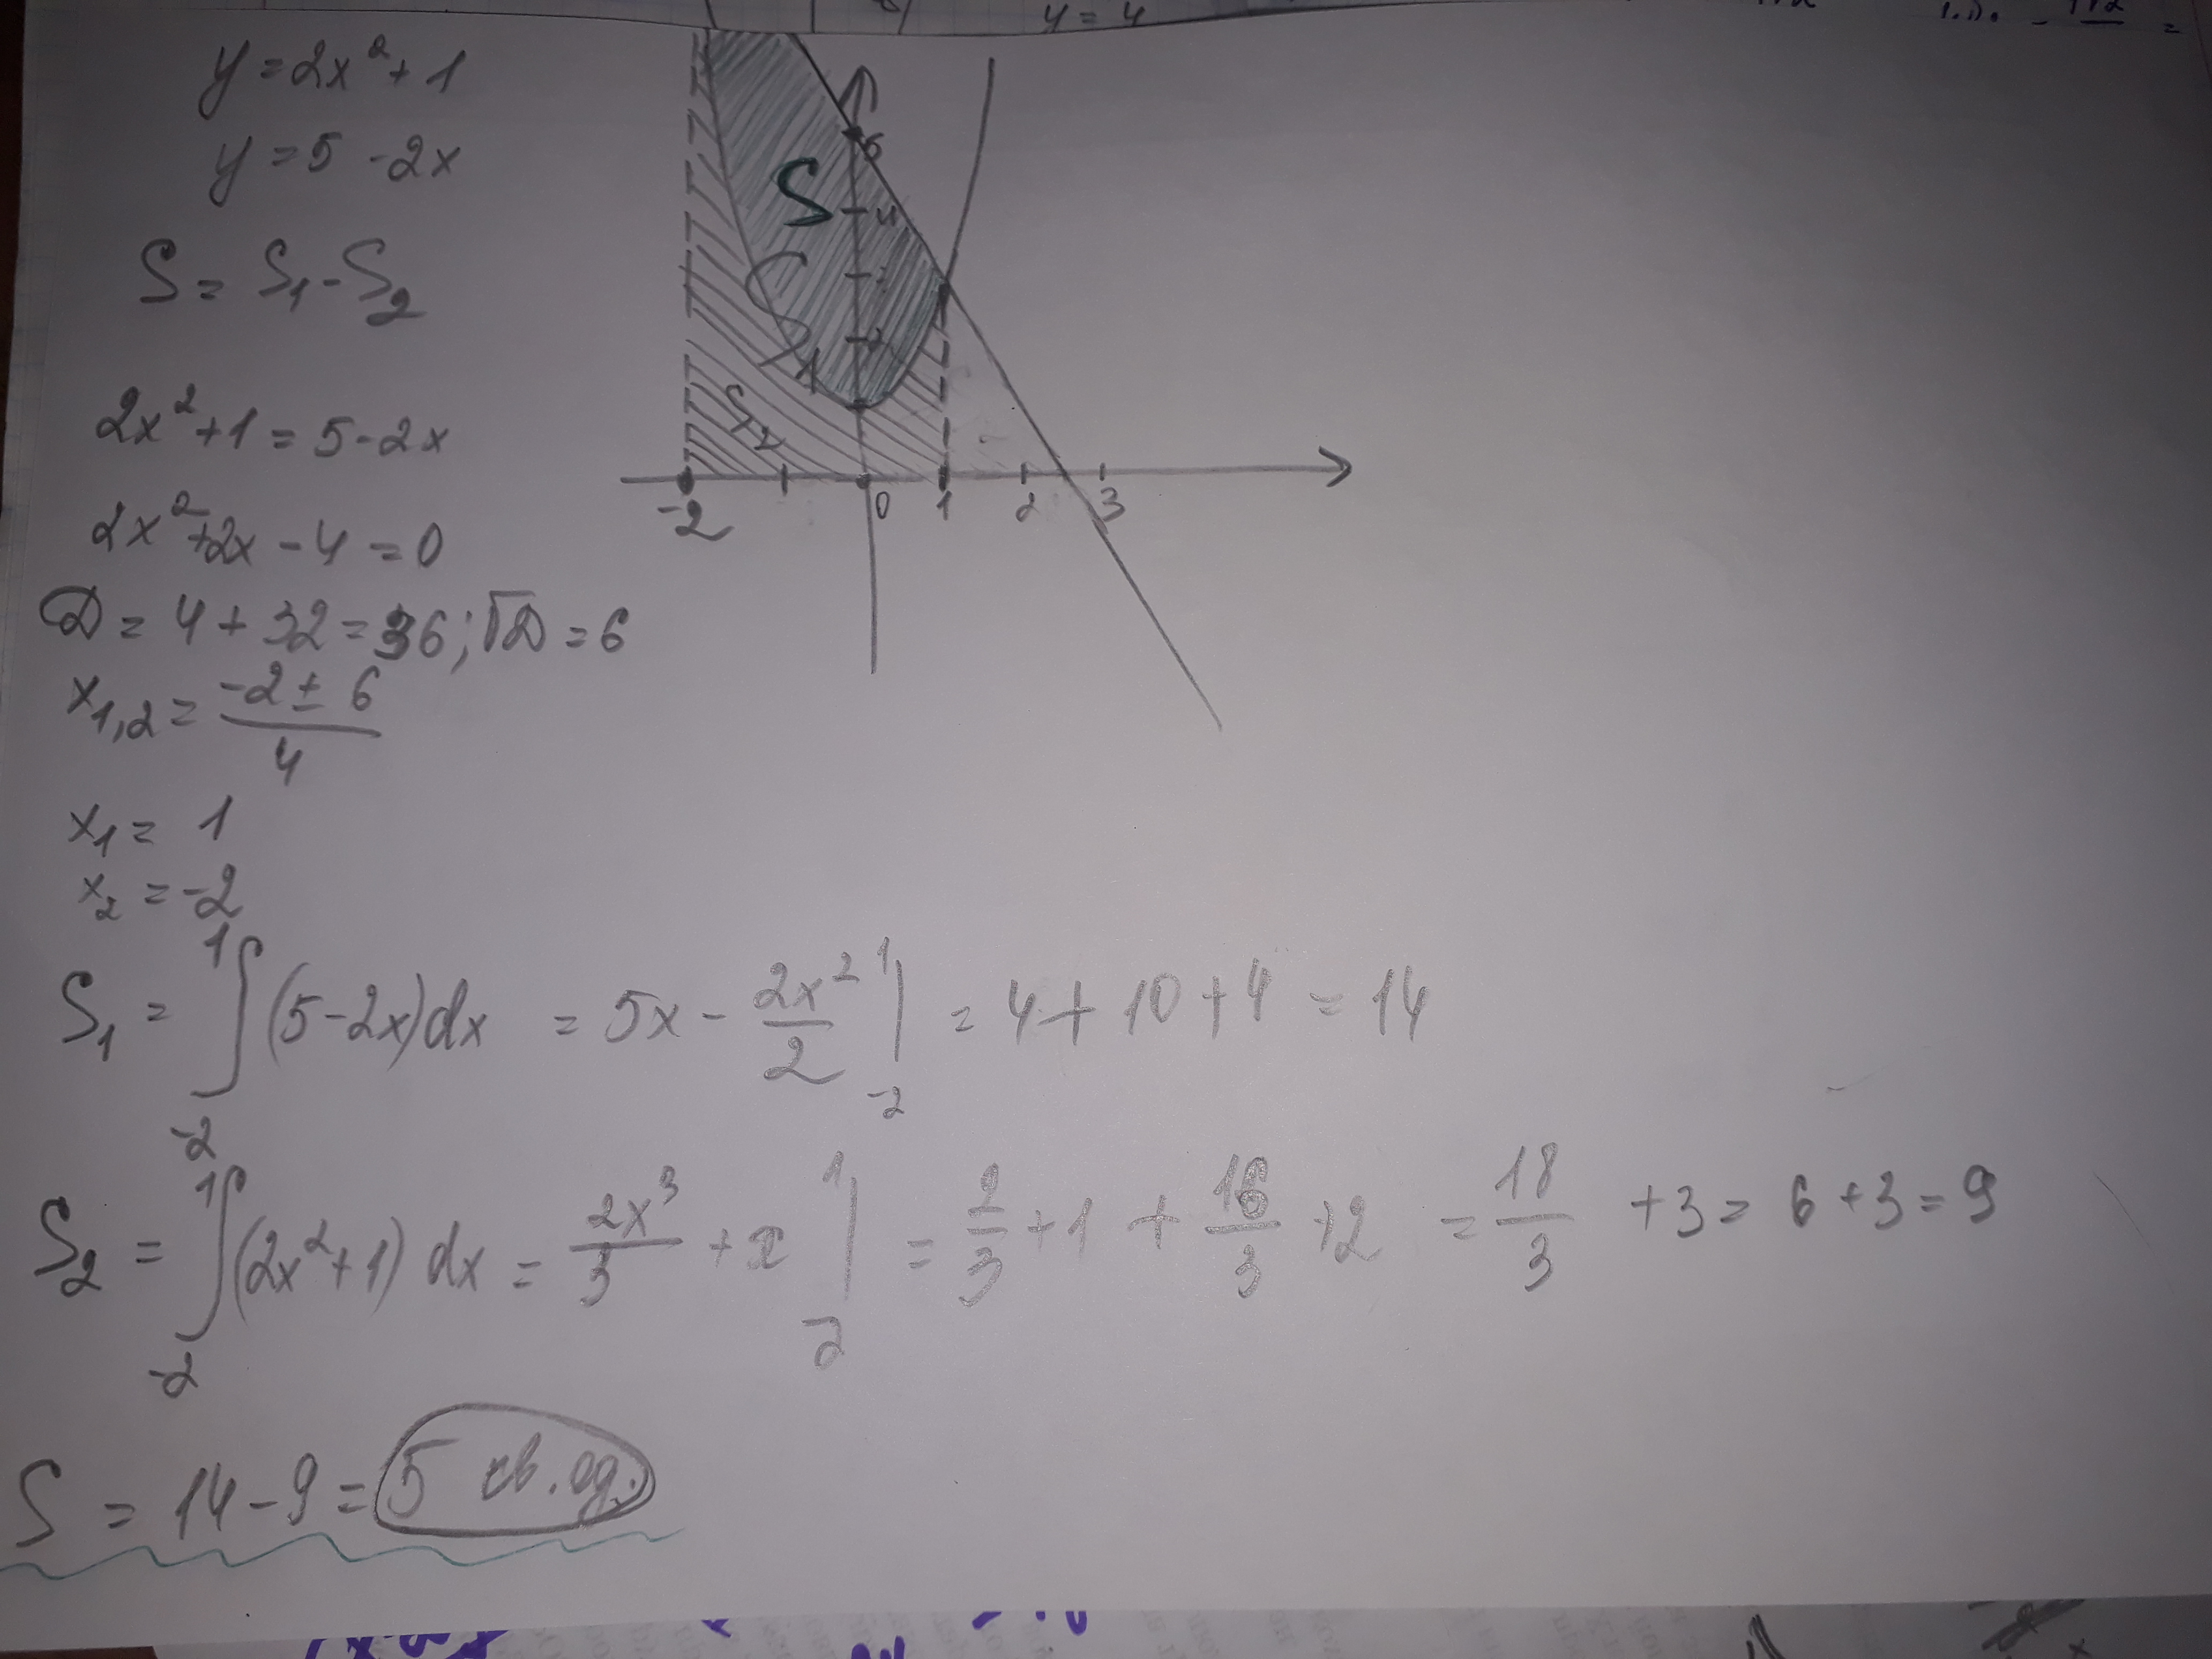 y = 4
y = 2x² + 1
y = 5 - 2x
S = S₁ - S₂
2x² + 1 = 5 - 2x
2x² + 2x - 4 = 0
D = 4 + 32 = 36; √D = 6
x₁,₂ = (-2 ± 6)/4
x₁ = 1
x₂ = -2
5
4
S
3
2
S₁
S₂
-2 0 1 2 3
S₁ = ∫₋₂¹ (5 - 2x) dx = 5x - 2x²/2 |₋₂¹ = 4 + 10 + 4 = 14
S₂ = ∫₋₂¹ (2x² + 1) dx = 2x³/3 + x |₋₂¹ = 2/3 + 1 + 16/3 + 2 = 18/3 + 3 = 6 + 3 = 9
S = 14 - 9 = 5 кв. ед.